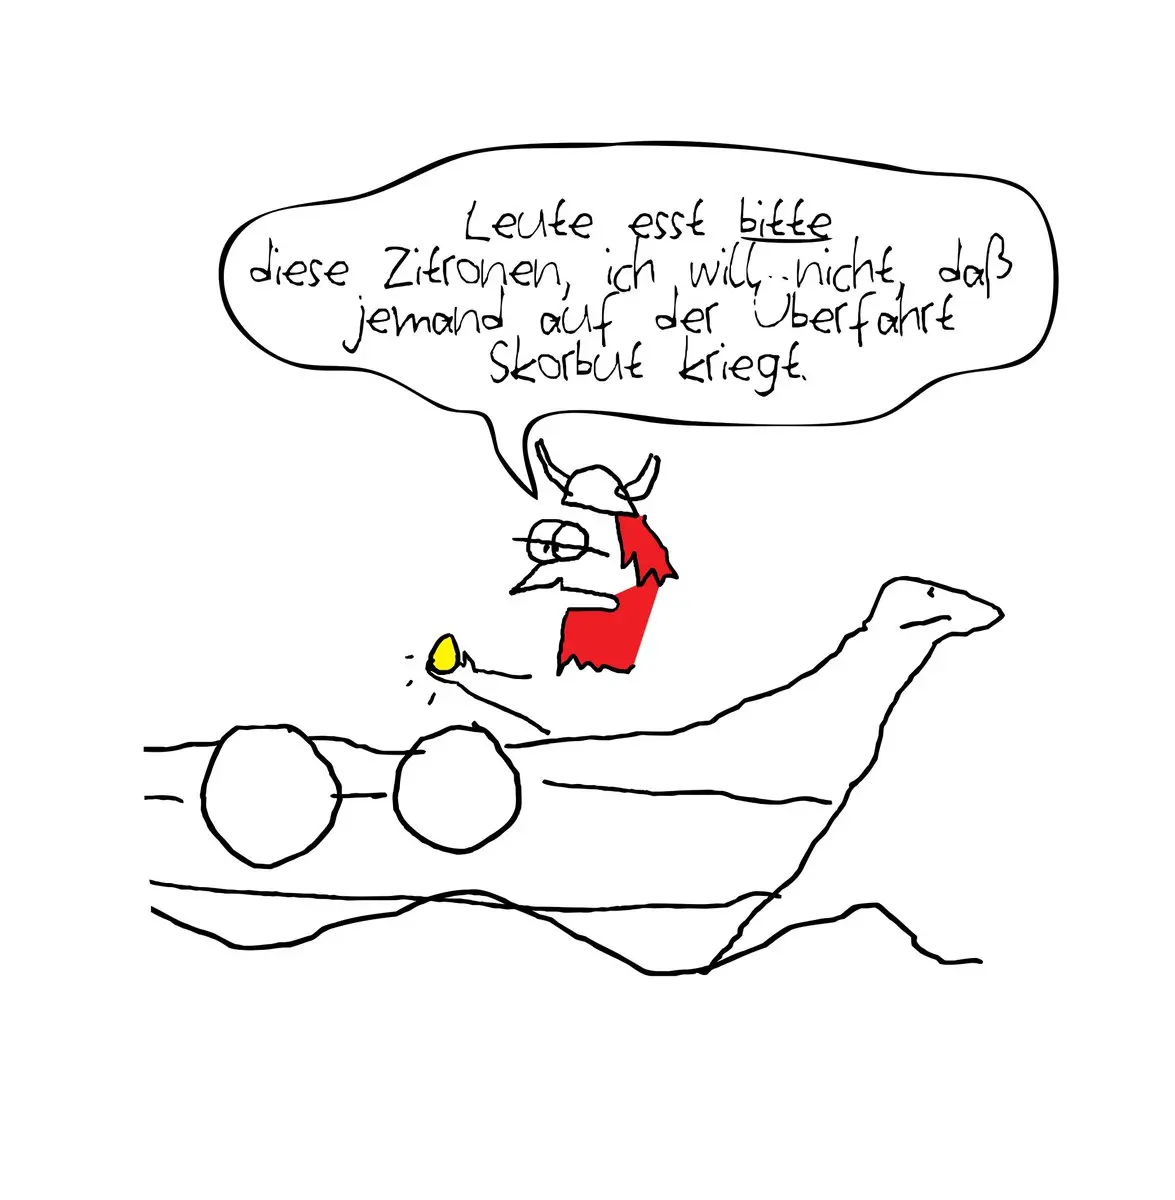 Leute esst bitte
diese Zitronen, ich will nicht, daß
jemand auf der Überfahrt
Skorbut kriegt.